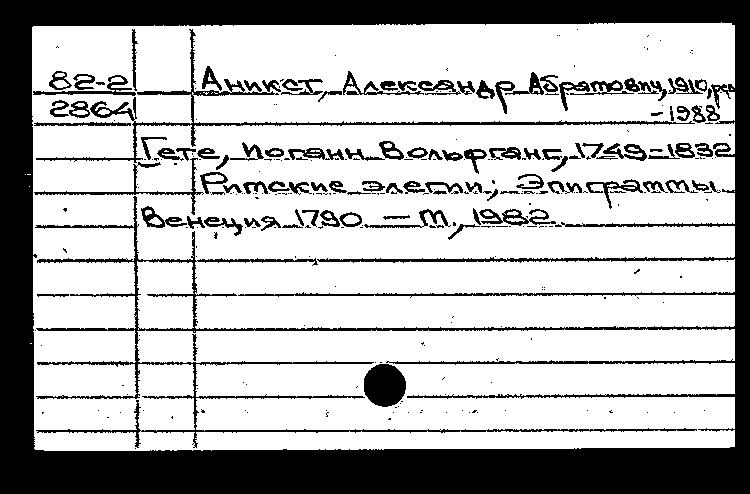 82-2 Аникст, Александр Абрамович, 1910, ред
2864 -1988
Гете, Иоганн Вольфганг, 1749-1832
Римские элегии; Эпиграммы
Венеция 1790. — М., 1982.